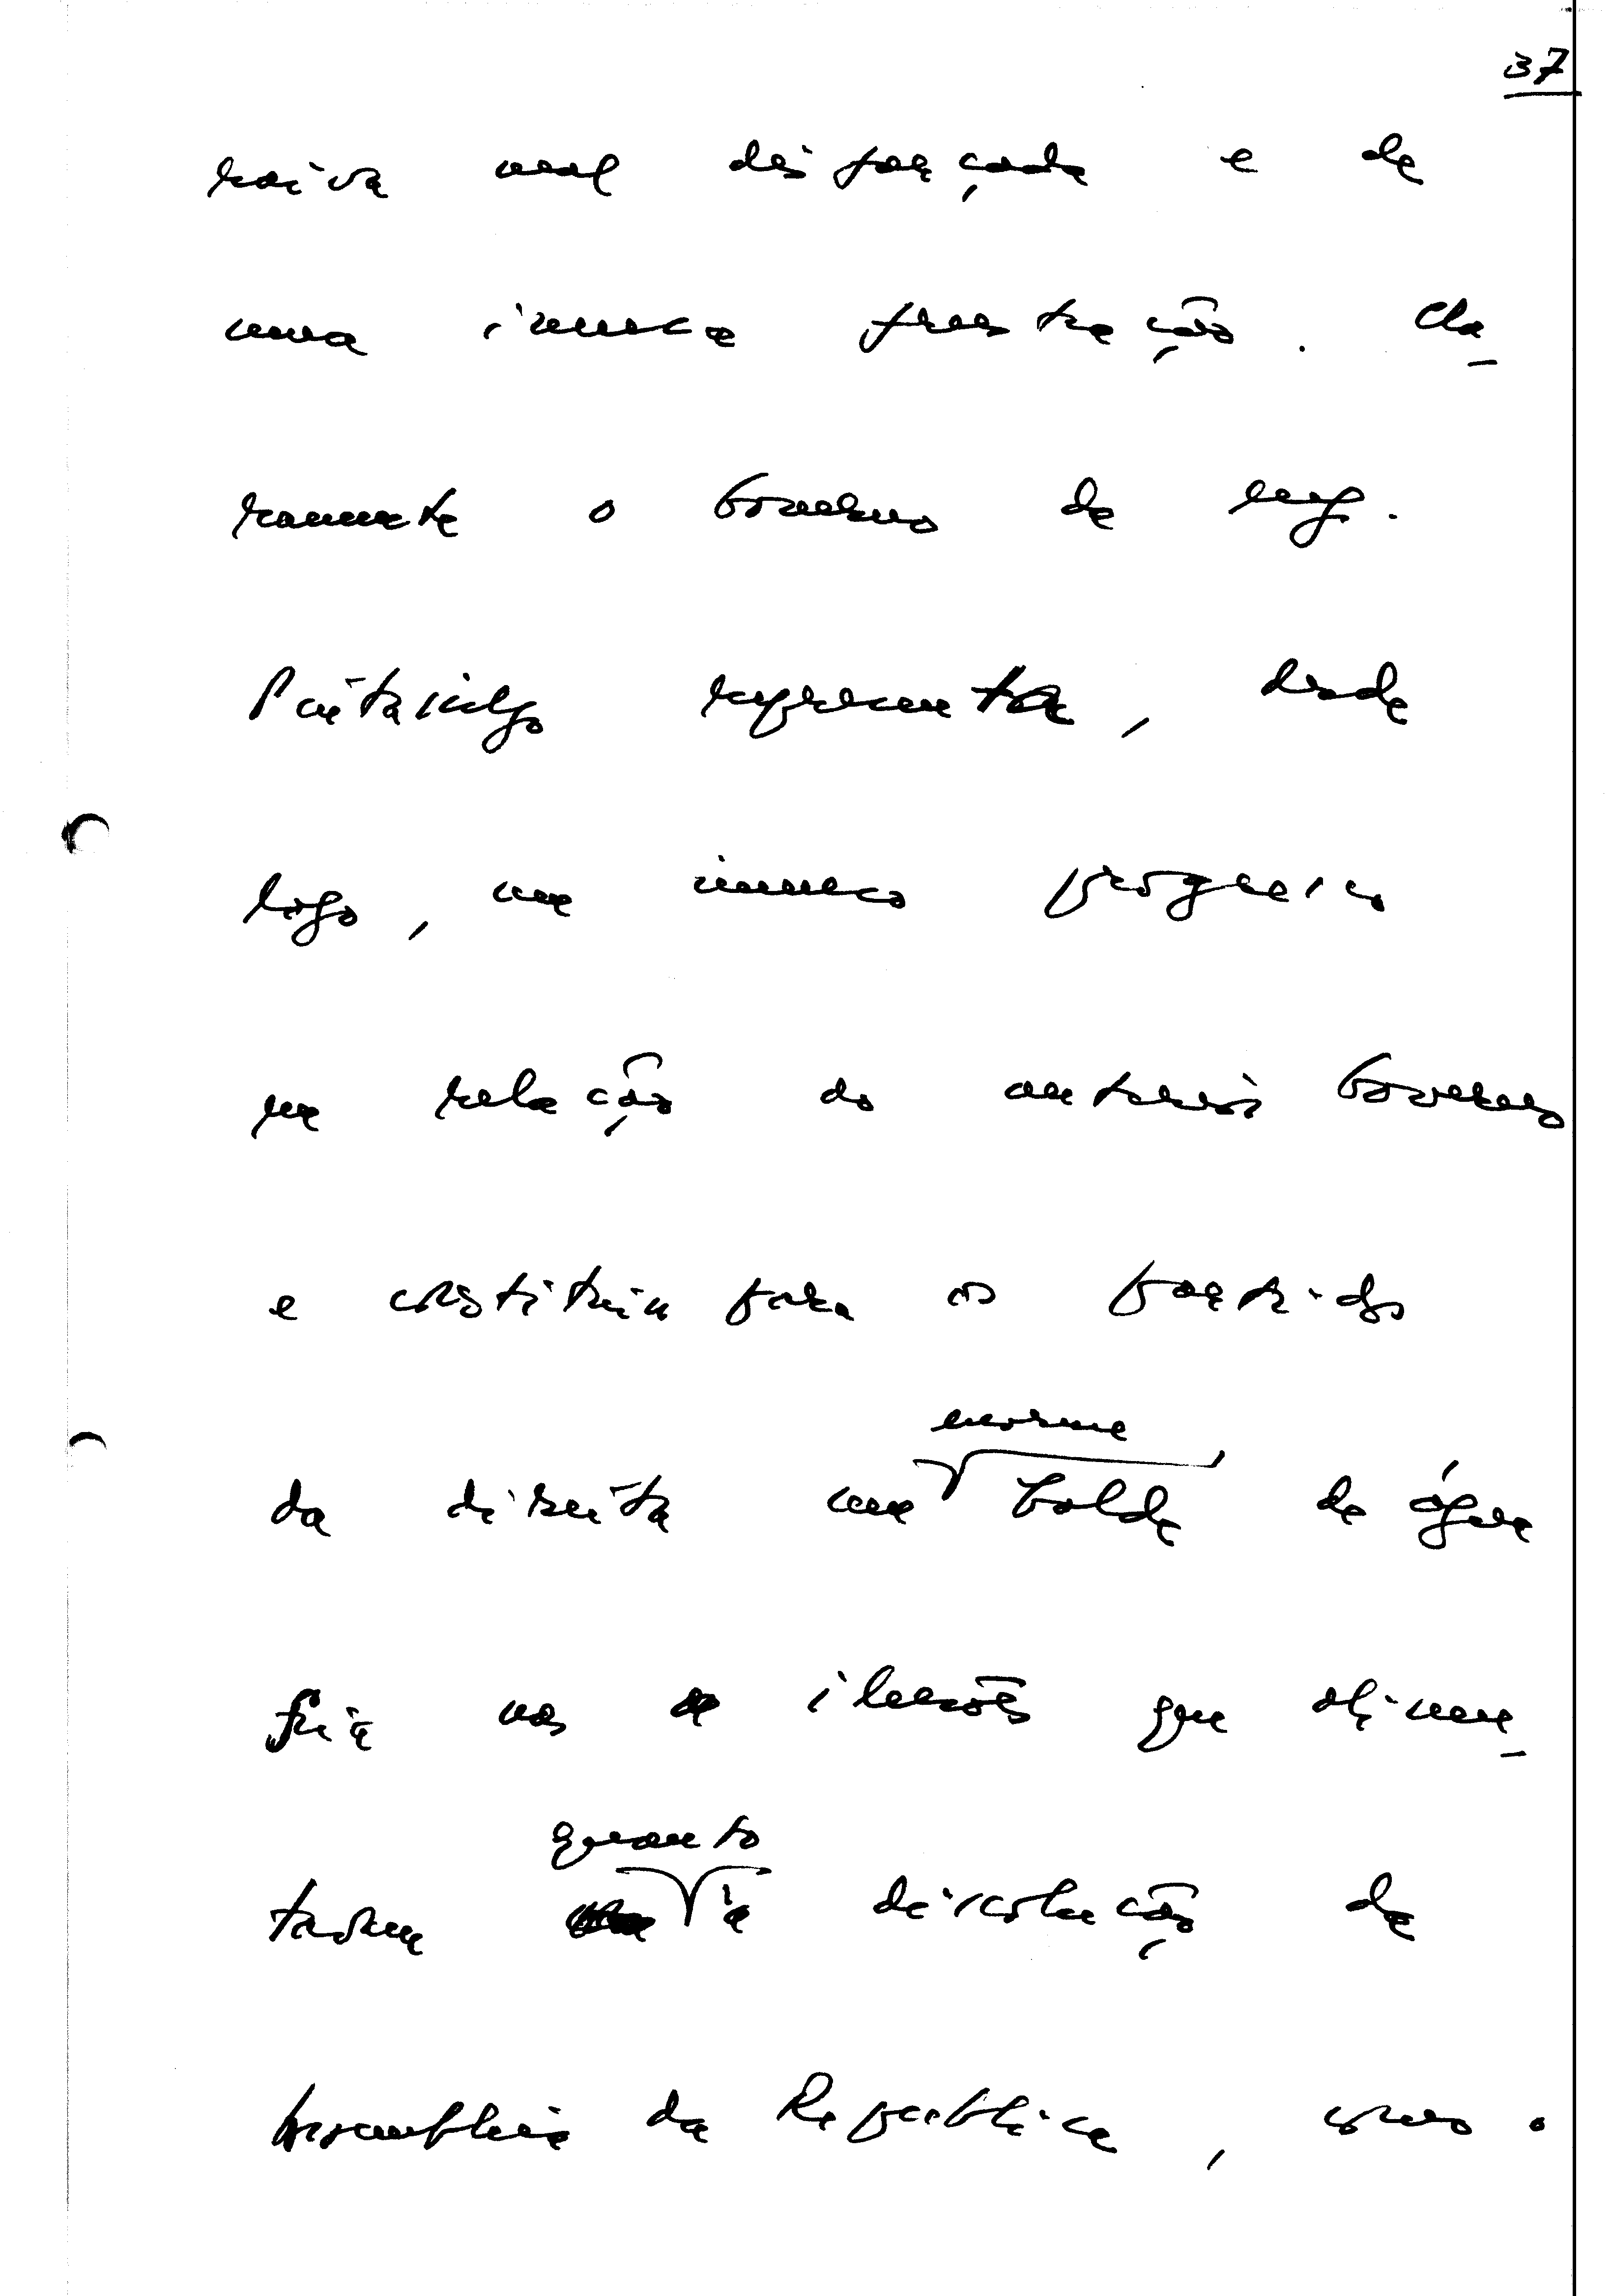 37
raiva mal disfarçada e de
uma imensa frustração. Cla-
ramente o Governo de Eng.
Pintasilgo representa, desde
logo, um imenso progresso
em relação ao anterior Governo
e constituiu para os partidos
enorme
da direita um balde de água
fria nas ilusões que alimen-
quanto
tavam à dissolução da
Assembleia da República, como o